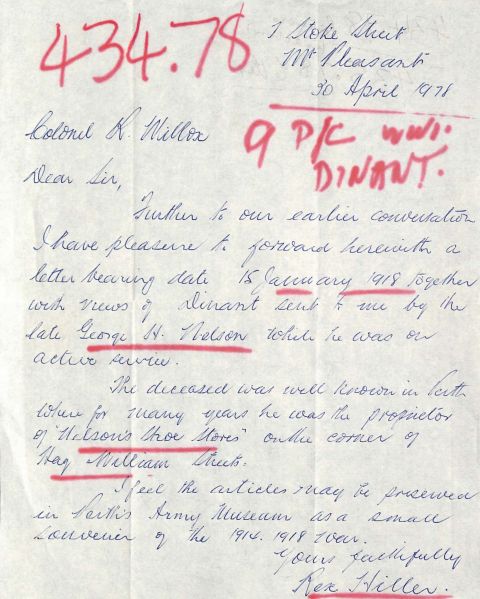 434.78
1 Stoke Street
Mt Pleasant
30 April 1978
9 P/C WW1.
DINANT.
Colonel R. Willox
Dear Sir,
Further to our earlier conversation
I have pleasure to forward herewith a
letter bearing date 15 January 1918 together
with views of Dinant sent to me by the
late George H. Nelson while he was on
active service.
The deceased was well known in Perth
where for many years he was the proprietor
of "Nelson's Shoe Stores" on the corner of
Hay William Streets.
I feel the articles may be preserved
in Perth's Army Museum as a small
souvenir of the 1914.1918 War.
Yours faithfully
Rex Hiller.